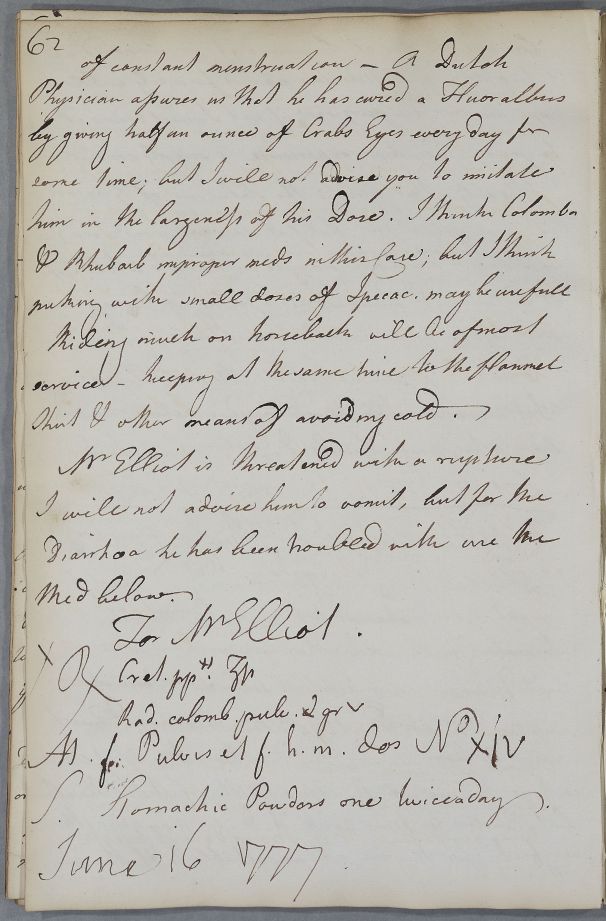 62
of constant menstruation – A Dutch
Physician assures us that he has cured a Fluor albus
by giving half an ounce of Crabs Eyes every day for
some time; but I will not advise you to imitate
him in the largeness of his Dose. I think Colombo
& Rhubarb improper meds in this Case; but I think
puking with small doses of Ipecac. may be usefull
Riding much on horseback will be of most
service – keeping at the same time to the flannel
Shirt & other means of avoiding cold.
Mr Elliot is threatened with a rupture
I will not advise him to vomit, but for the
Diarrhœa he has been troubled with use the
Med below.
For Mr Elliot.
℞ Cret. ppt. ʒp
Rad. colomb. pulv. gr v
M. f. Pulvis et f. h. m. dos No XIV
S. Stomachic Powders one twice a day.
June 16 1777.